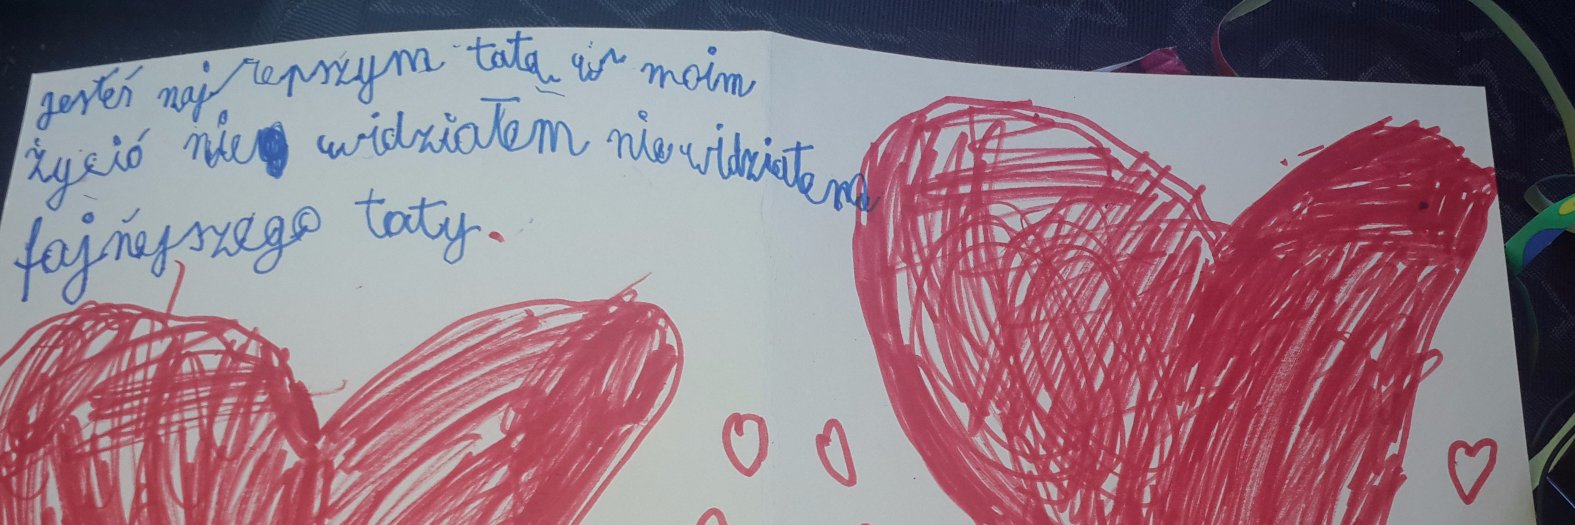 jesteś najlepszym tatą w moim
życió nie widziałem niewidziałem
fajńejszego taty.